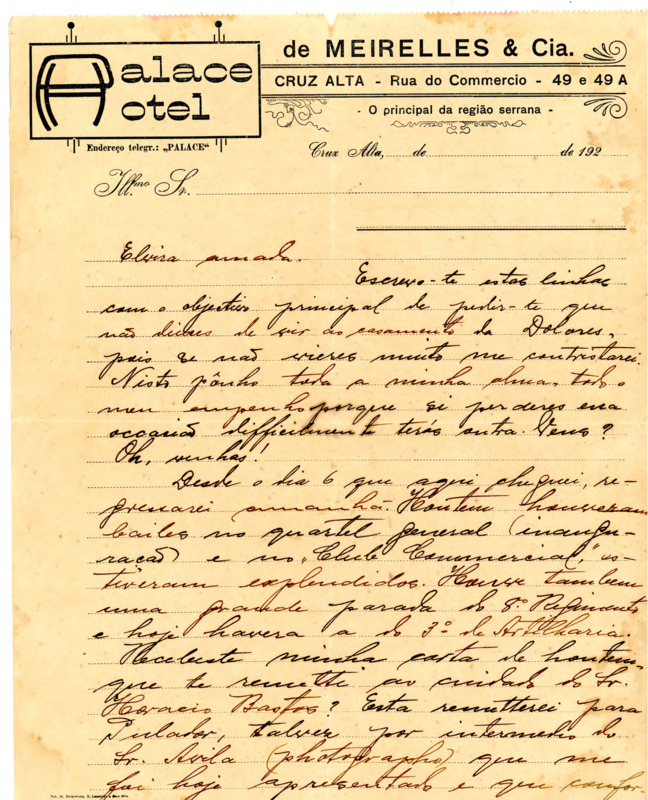 Palace Hotel
de MEIRELLES & Cia.
CRUZ ALTA - Rua do Commercio - 49 e 49 A
- O principal da região serrana -
Endereço telegr.: „PALACE“
Cruz Alta, de de 192
Ill.mo Sr.
Elvira amada.
Escrevo-te estas linhas
com o objectivo principal de pedir-te que
não deixes de vir ao casamento da Dolores,
pois se não vieres muito me contristarei.
Nisto pônho toda a minha alma, todo o
meu empenho porque si perderes essa
occasião difficilmente terás outra. Vens?
Oh, venhas!
Desde o dia 6 que aqui cheguei, re-
gressarei amanhã. Hontem houveram
bailes no quartel general (inaugu-
ração) e no „Club Commercial,“ es-
tiveram explendidos. Houve tambem
uma grande parada do 8º Regimento
e hoje havera a do 3º de Artilharia.
Recebeste minha carta de hontem
que te remetti ao cuidado do Sr.
Horacio Bastos? Esta remetterei para
Pulador, talvez por intermedio do
Sr. Avila (photographo) que me
foi hoje apresentado e que confor-